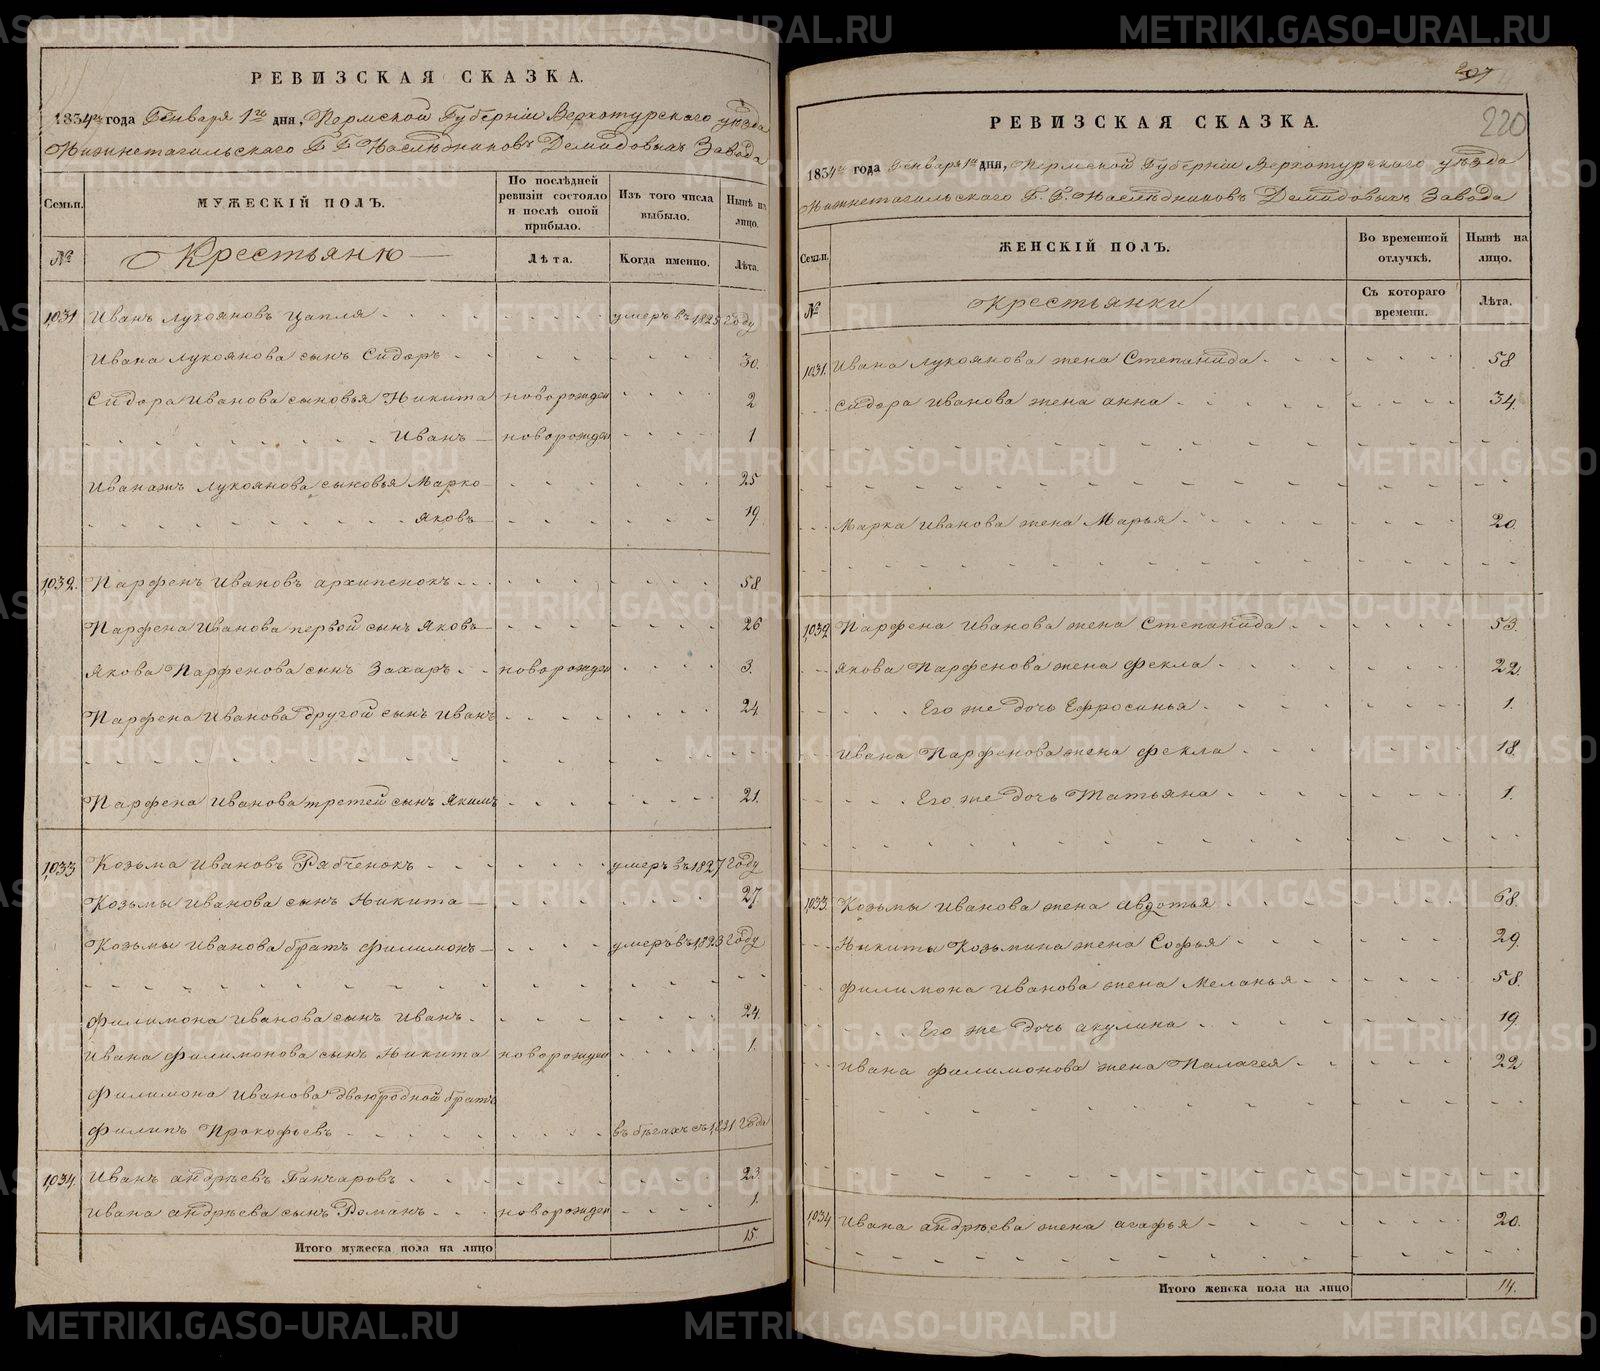 РЕВИЗСКАЯ СКАЗКА.
1834го года Генваря 1го дня, Пермской Губерніи Верхотурскаго уѣзда
Нижнетагильскаго Г. Г. Наслѣдниковъ Демидовыхъ Завода
Семьи.
МУЖЕСКІЙ ПОЛЪ.
По послѣдней ревизіи состояло и послѣ оной прибыло.
Изъ того числа выбыло.
Нынѣ на лицо.
№
Крестьяне
Лѣта.
Когда именно.
Лѣта.
1031 Иванъ Лукояновъ Цапля умеръ въ 1825 году
Ивана Лукоянова сынъ Сидоръ 30.
Сидора Иванова сыновья Никита новорожден 2
Иванъ новорожден 1
Лукоянова сыновья Марко 25
Яковъ 19.
1032. Парфенъ Ивановъ Архипенокъ 58
Парфена Иванова первой сынъ Яковъ 26
Якова Парфенова сынъ Захаръ новорожден 3.
Парфена Иванова другой сынъ Иванъ 24
Парфена Иванова третей сынъ Якимъ 21.
1033 Козьма Ивановъ Рябченокъ умеръ въ 1827 году
Козьмы Иванова сынъ Никита 27
Козьмы Иванова братъ Филимонъ умеръ въ 1823 году
Филимона Иванова сынъ Иванъ 24.
Ивана Филимонова сынъ Никита новорожден 1.
Филимона Иванова двоюродной братъ
Филипъ Прокофьевъ въ бѣгахъ съ 1831 года
1034. Иванъ Андрѣевъ Ганчаровъ 23.
Ивана Андрѣева сынъ Романъ новорожден 1
Итого мужеска пола на лицо 15.
207
220
РЕВИЗСКАЯ СКАЗКА.
1834го года Генваря 1го дня, Пермской Губерніи Верхотурскаго уѣзда
Нижнетагильскаго Г. Г. Наслѣдниковъ Демидовыхъ Завода
Семьи.
ЖЕНСКІЙ ПОЛЪ.
Во временной отлучкѣ.
Нынѣ на лицо.
№
Крестьянки
Съ котораго времени.
Лѣта.
1031. Ивана Лукоянова жена Степанида 58
Сидора Иванова жена Анна 34.
Марка Иванова жена Марья 20.
1032 Парфена Иванова жена Степанида 53.
Якова Парфенова жена Фекла 22.
Его же дочь Ефросинья 1.
Ивана Парфенова жена Фекла 18.
Его же дочь Татьяна 1.
1033. Козьмы Иванова жена Авдотья 68.
Никиты Козьмина жена Софья 29.
Филимона Иванова жена Меланья 58.
Его же дочь Акулина 19.
Ивана Филимонова жена Палагея 22
1034 Ивана Андрѣева жена Агафья 20.
Итого женска пола на лицо 14.
METRIKI.GASO-URAL.RU